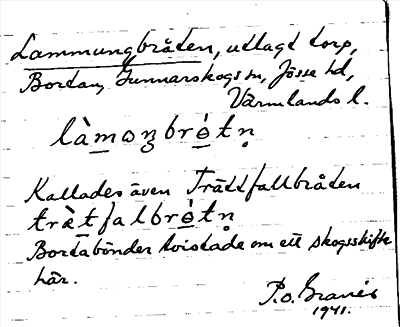 Lammungbråten, utlagt torp,
Bordan, Gunnarskogs sn, Jösse hd,
Värmlands l.
làmoŋbrètn̥
Kallades även Trättfallbråten
tràtfalbrètn̥
Bordabönder tvistade om ett skogsskifte
här.
P.O. Granér
1941.